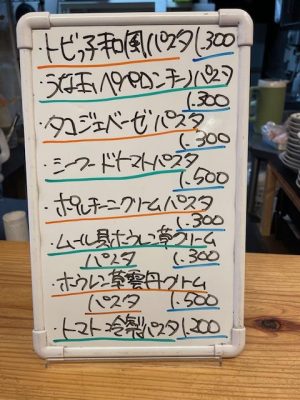 ・トビっ子和風パスタ1.300
うな玉ペペロンチーノパスタ
1.300
・タコジェノベーゼパスタ
1.300
・シーフードトマトパスタ
1.500
・ポルチーニクリームパスタ
1.300
・ムール貝ホウレン草クリーム
パスタ 1.300
・ホウレン草雲丹クリーム
パスタ 1.500
・トマト冷製パスタ 1.200